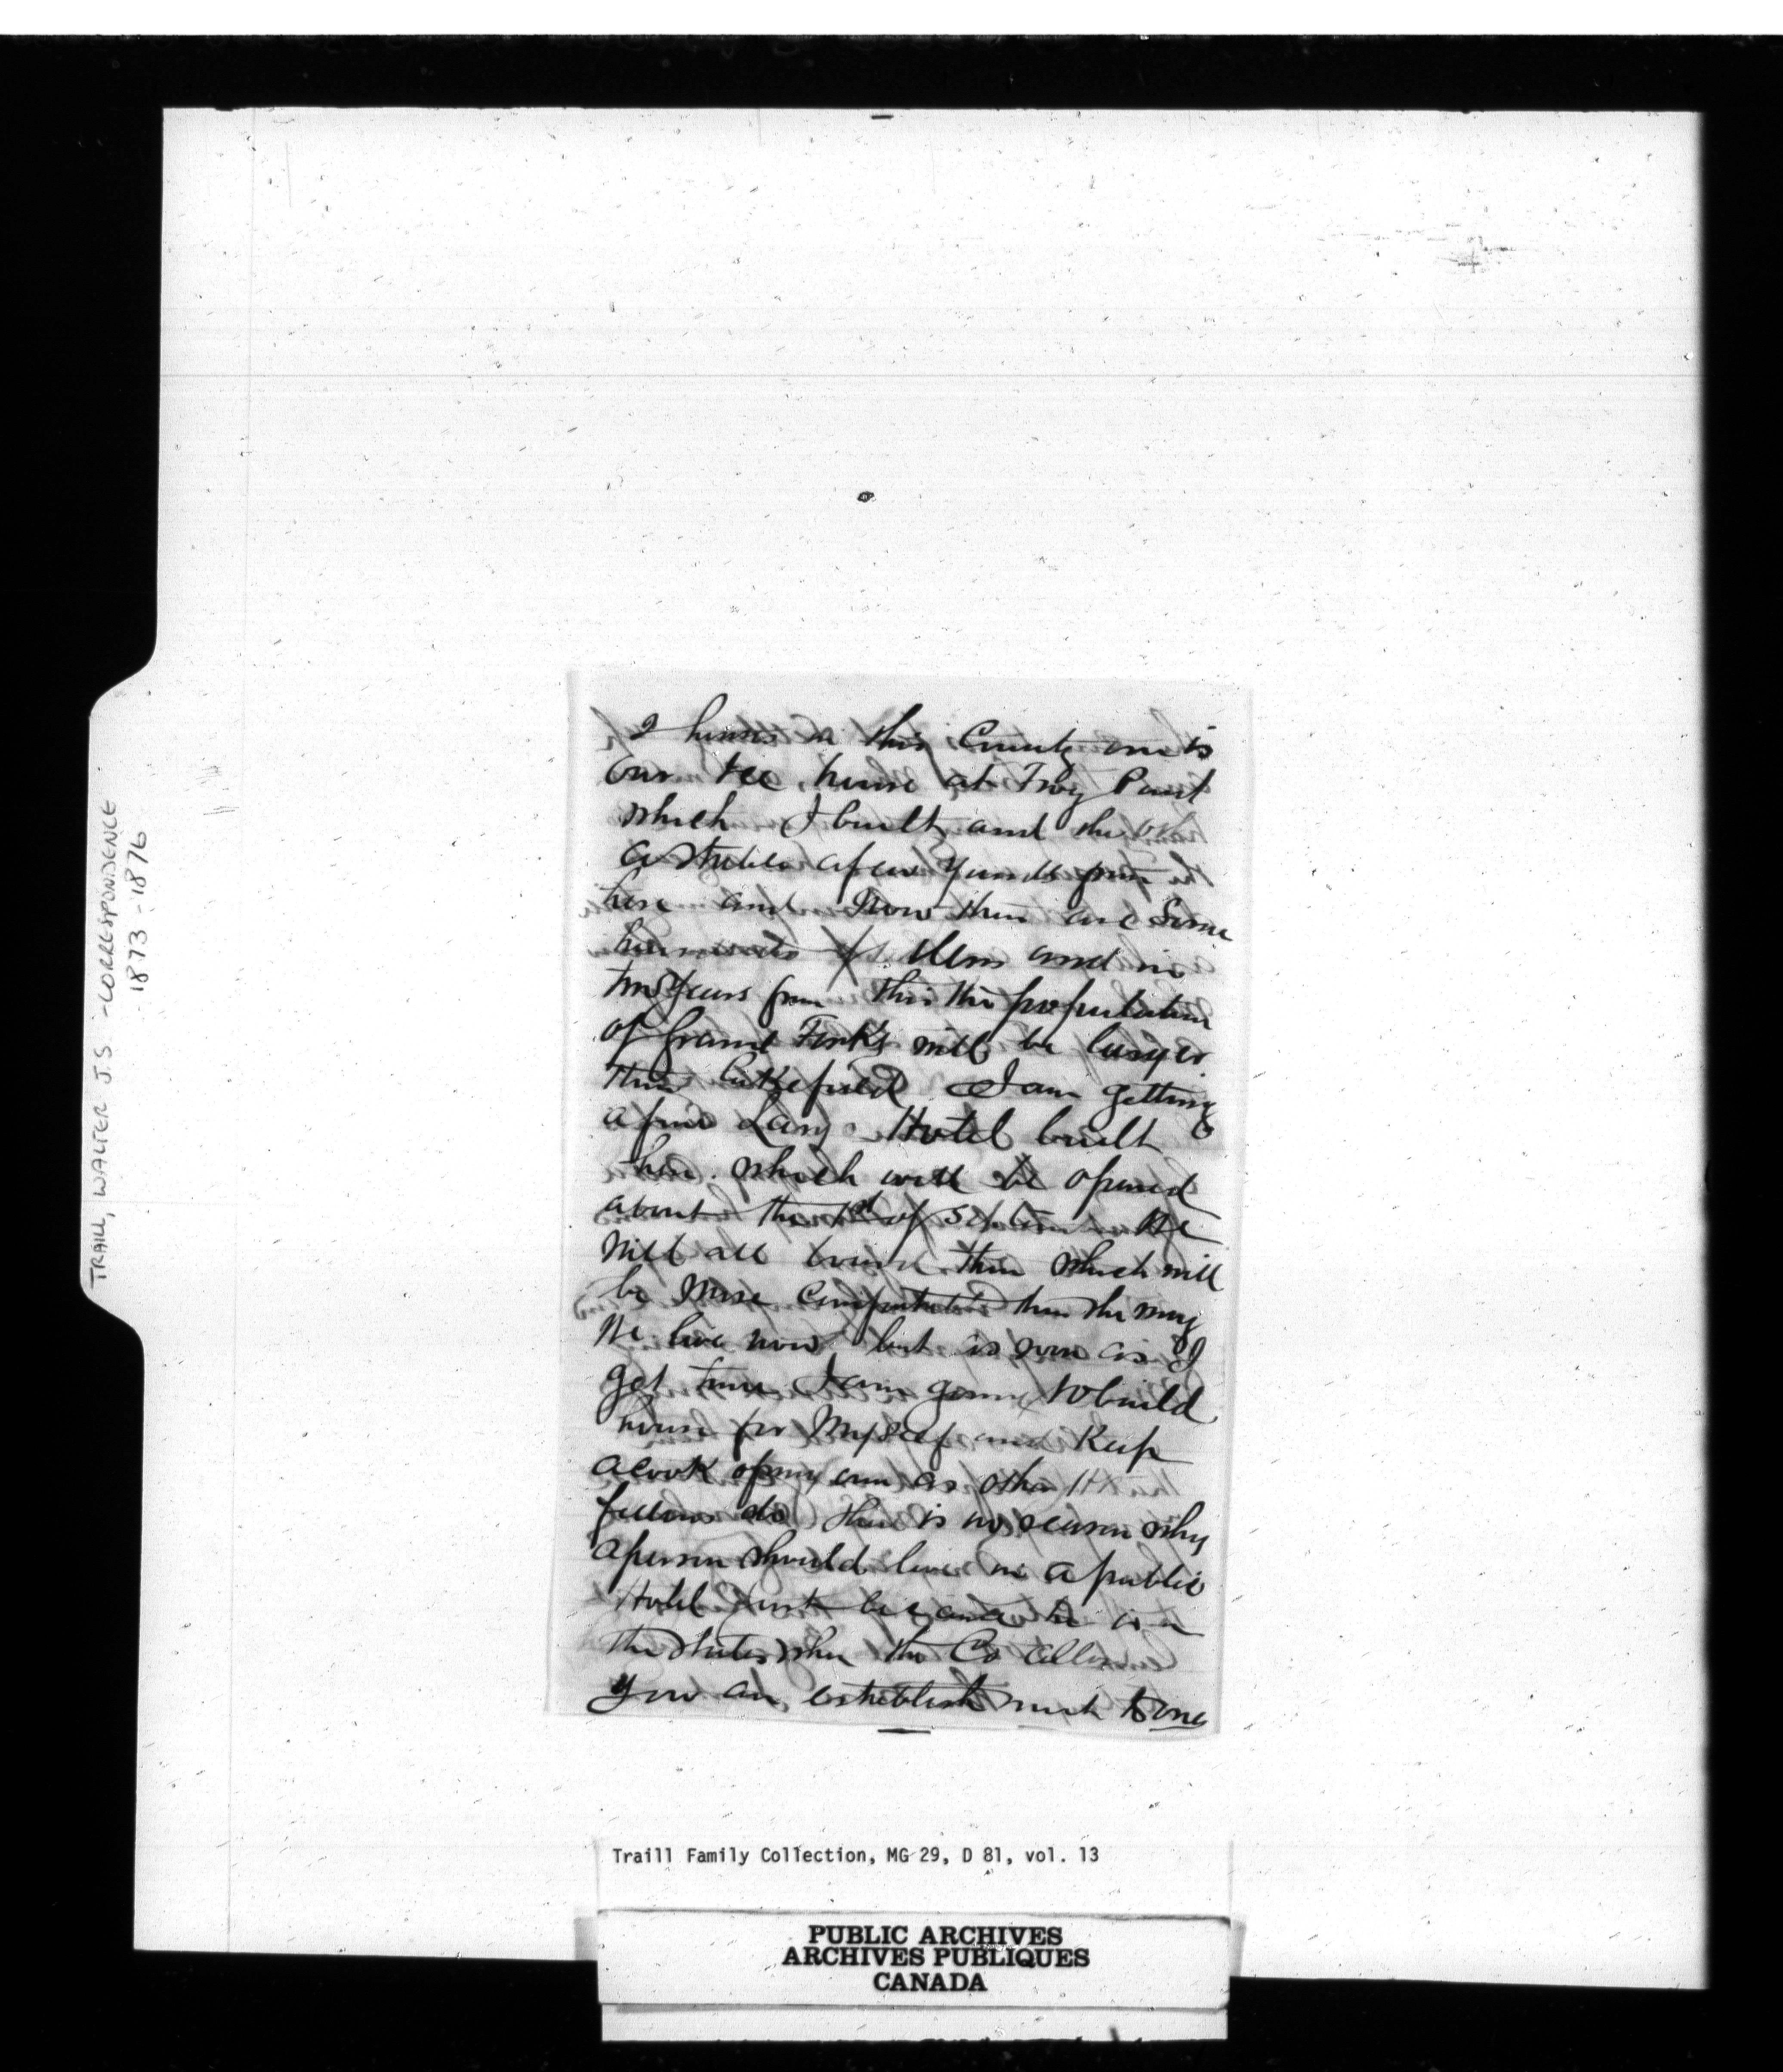 TRAILL, WALTER J.S - CORRESPONDENCE
1873-1876
2 houses in this County one is
our Ice house at Frog Point
which I built and the other
a stable a few yards from
here and now there are some
hundreds of them and in
two years from this the population
of Grand Forks will be larger
than Lakefield I am getting
a fine Large Hotel built
here which will be opened
about the 1st of We
will all board there which will
be more comfortable than the way
we live now but as soon as I
get time I am going to build
house for Myself and Keep
a cook of my own as other H
fellows do there is no reason why
a person should live in a public
Hotel just because he is in
the States when the Co allow
you an establishment to one
Traill Family Collection, MG 29, D 81, vol. 13
PUBLIC ARCHIVES
ARCHIVES PUBLIQUES
CANADA